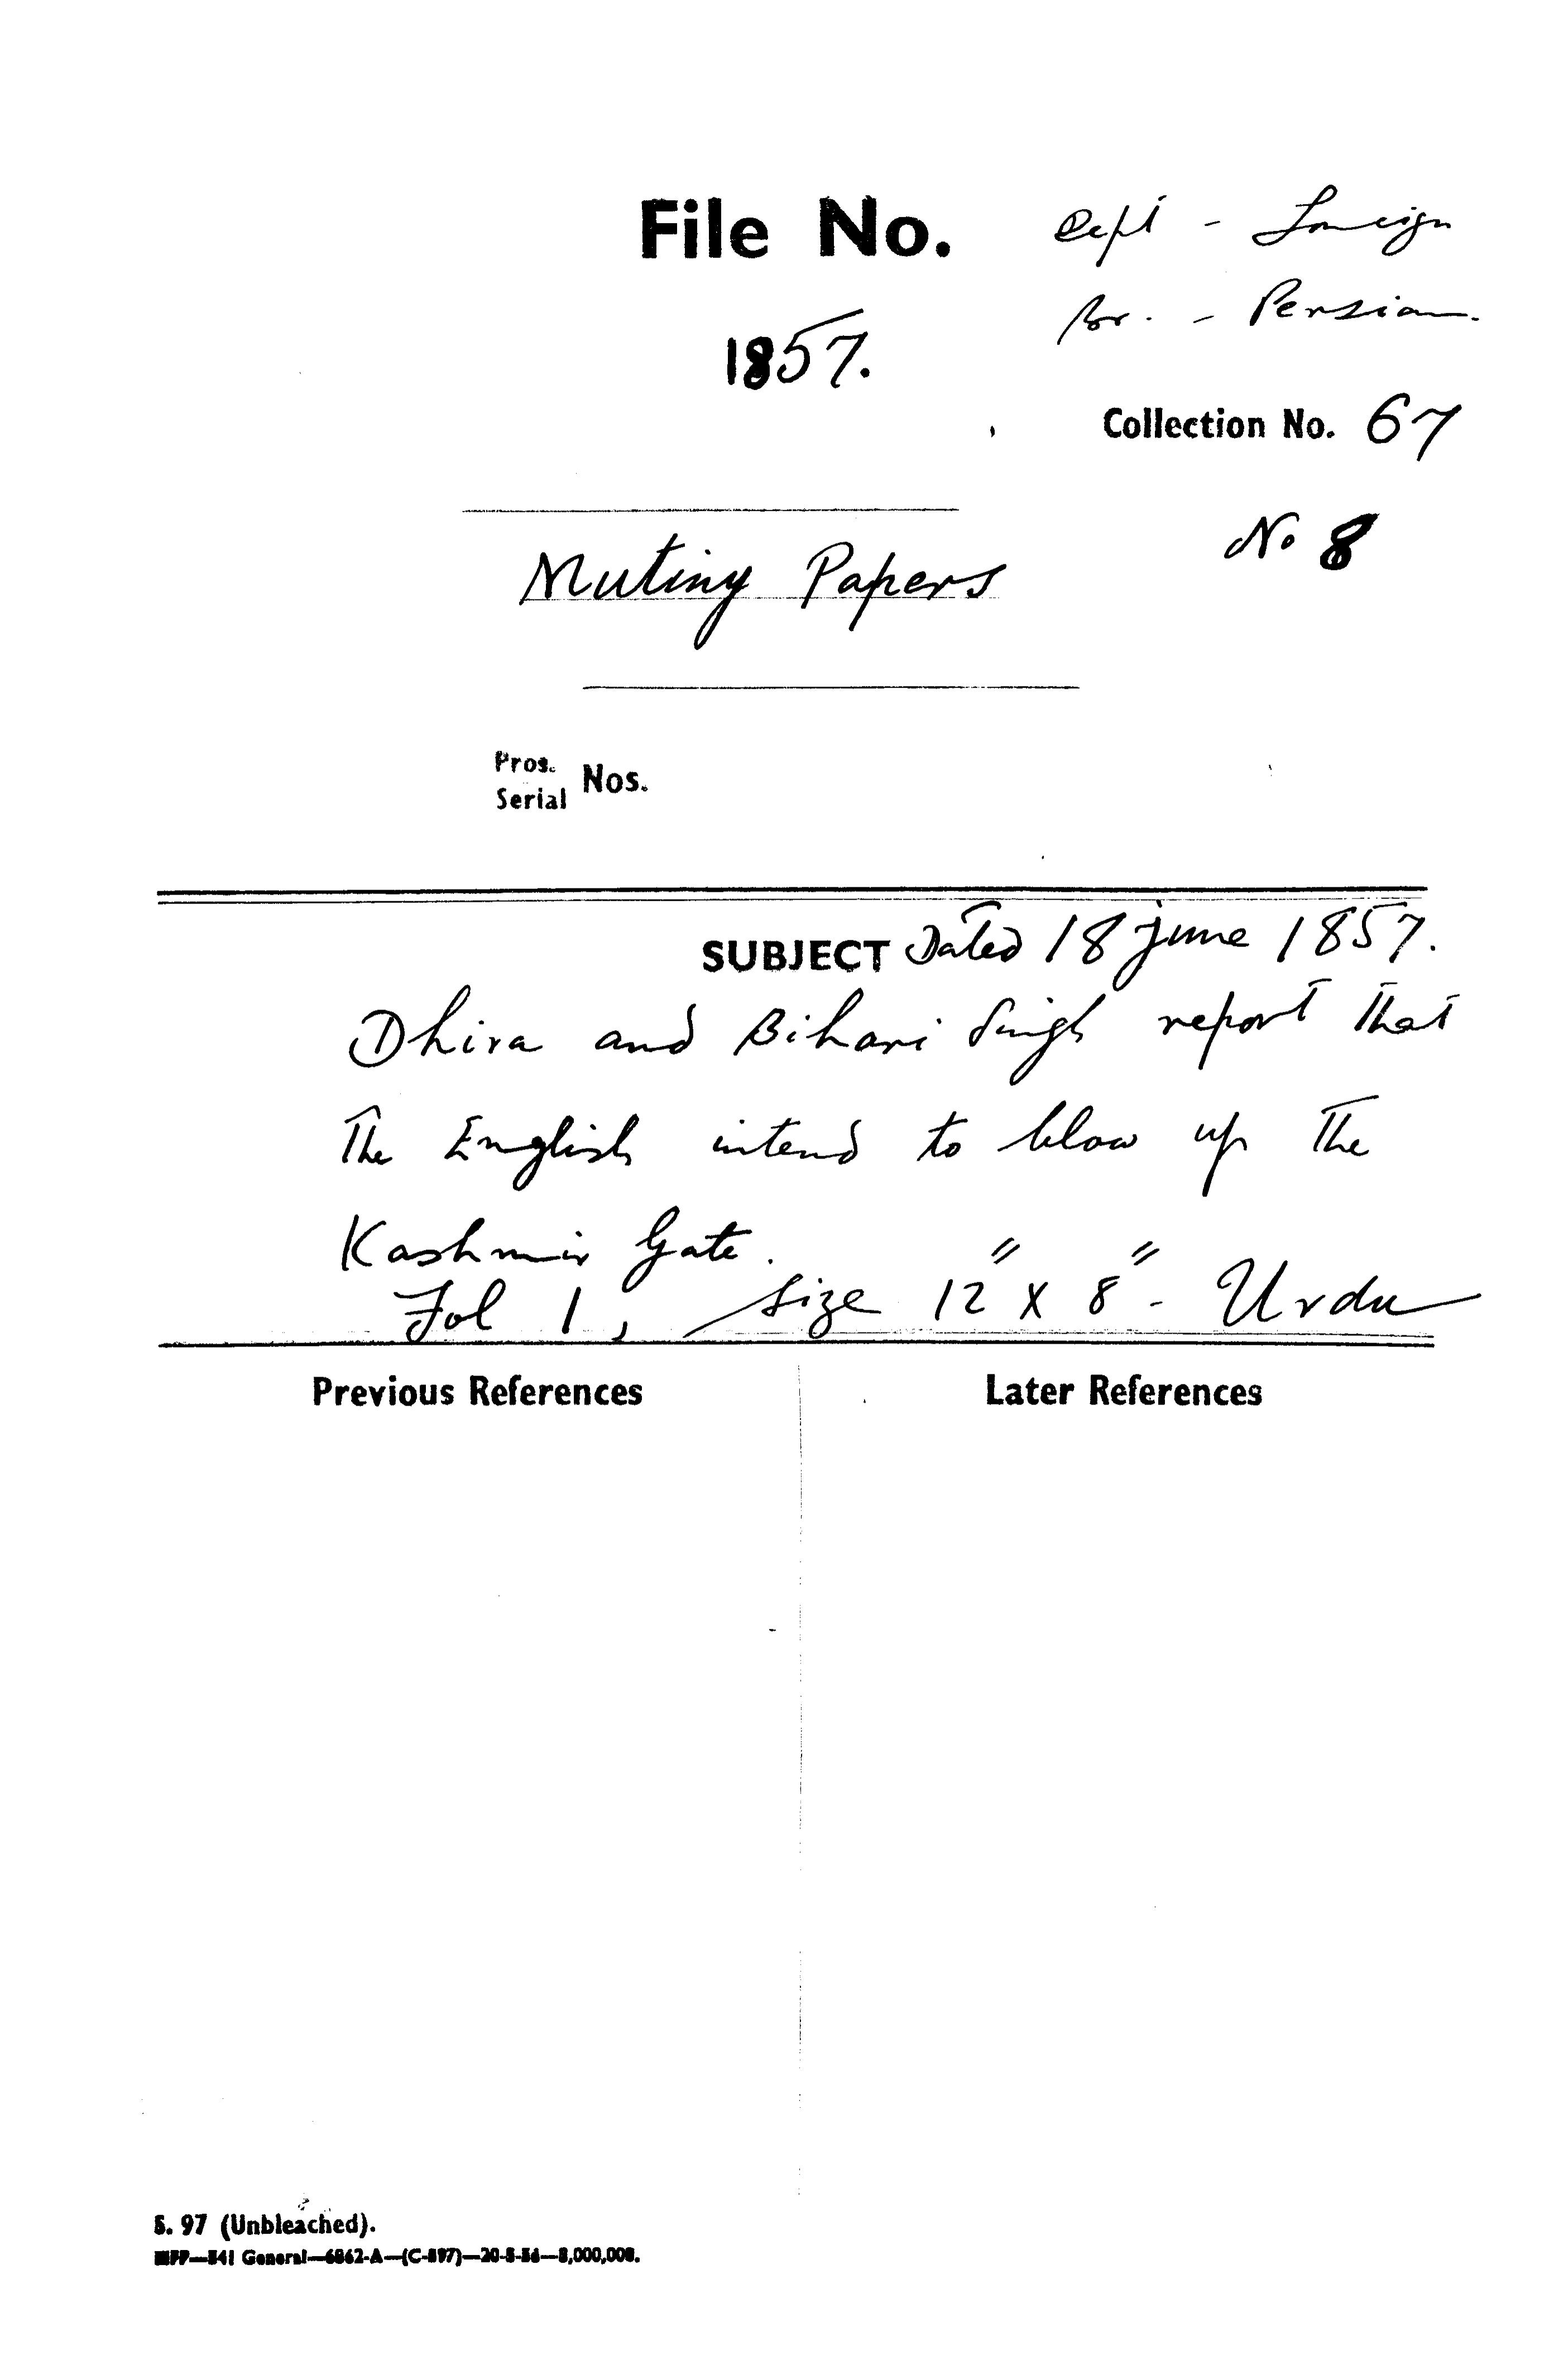 File No.
Dept - Foreign
1857.
Br. - Persian.
Collection No. 67
No 8
Mutiny Papers
Pros.
Serial Nos.
SUBJECT Dated 18 June 1857.
Dhira and Bihari Singh report that
The English intend to blow up the
Kashmir Gate.
Fol 1, size 12" x 8" - Urdu
Previous References
Later References
S. 97 (Unbleached).
General—6862-A—